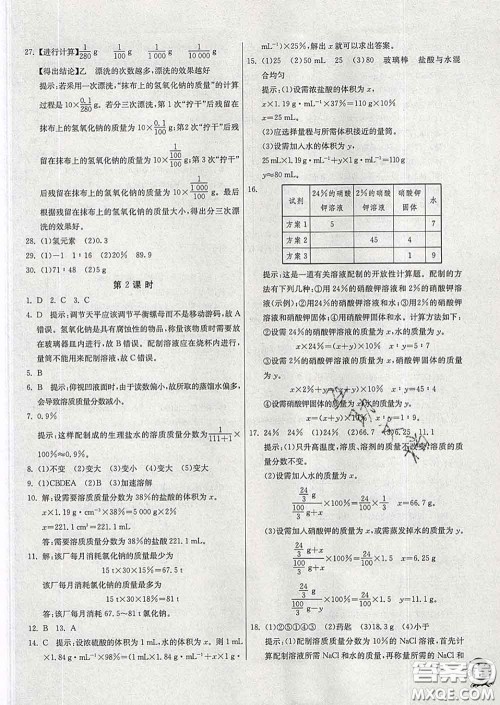 27.【进行计算】1/280 g 1/100 g 1/1 000 g 1/10 000 g
【得出结论】乙 漂洗的次数越多,漂洗的效果越好
提示:若采用一次漂洗,“抹布上的氢氧化钠的质量”的计算
过程是10×0.1/280 g;若分三次漂洗,第1次“拧干”后残留在
抹布上的氢氧化钠的质量为10×0.1/100 g;第2次“拧干”后残
留在抹布上的氢氧化钠的质量为10×1/1 000 g,第3次“拧干”
后残留在抹布上的氢氧化钠的质量为10×1/10 000 g。根据残
留在抹布上的氢氧化钠质量大小,得出分三次漂
洗的效果好。
28. (1)氢元素 (2)0.3
29. (1)-1 1∶16 (2)20 89.9
30. (1)71∶48 (2)5 g
第2课时
1. D 2. C 3. D
4. B 提示:调节天平应该调节平衡螺母而不是移动游码,故A
错误。氢氧化钠是具有腐蚀性的药品,因此称取的时候需要放
在玻璃器皿内进行,故B正确。配制溶液应在烧杯内进行,
量筒不能用来配制溶液,故C错误。
5. B
6. B 提示:俯视凹液面时,由于读数偏小,故所取的蒸馏水偏多,
溶质质量分数减小。
7. 0.9%
提示:这样配制成的生理盐水的溶质质量分数为1/(111+1)×
100%≈0.9%。
8. (1)不变 (2)变大 (3)变大
9. (1)CBDEA (2)B (3)加速溶解
10. 解:设需要溶质质量分数为38%的盐酸的体积为x。
x×1.19 g·cm⁻³×38%=5 000 g×2%
x=221.1 cm³=221.1 mL。
答:需要溶质质量分数为38%的盐酸221.1 mL。
11. 解:该厂每月消耗氯化钠的质量最少为
15 t×30×15%=67.5 t
该厂每月消耗氯化钠的质量最多为
15 t×30×18%=81 t
答:该厂每月消耗67.5~81 t氯化钠。
12. B 13. A
14. C 提示:设浓硫酸的体积为1 mL,水的体积为x mL。则有
1 mL×1.84 g·mL⁻¹×98%=(1 mL×1.84 g·mL⁻¹+x
mL×)×25%,解出x就可以求出答案。
15. (1)25 (2)50 mL 25 (3)80 玻璃棒 盐酸与水混
合均匀
提示:(1)设需浓盐酸的体积为x,
x×1.19 g·mL⁻¹×37%=110 g×10%
x=25 mL。
(2)应选择量程与所需体积接近的量筒。
(3)设需加入水的体积为y。
25 mL×1.19 g·mL⁻¹+y×1 g·mL⁻¹=110 g
y≈80 mL。
16.
试剂 24%的硝酸钾溶液 2%的硝酸钾溶液 硝酸钾固体 水
方案1 5 7
方案2 45 4
方案3 1 9
提示:这是一道有关溶液配制的开放性计算题。配制的方
法有以下四种:①24%的硝酸钾溶液和2%的硝酸钾溶
液(示例);②24%的硝酸钾溶液和水;③2%的硝酸钾溶液
和硝酸钾固体;④用硝酸钾固体和水。计算方法如下:
②设需24%的硝酸钾溶液的质量为x,水的质量为y。
x×24%=(x+y)×10% x∶y=5∶7。
③设需2%的硝酸钾溶液的质量为x,硝酸钾固体的质量为y。
x×2%+y=(x+y)×10% x∶y=45∶4。
④设需硝酸钾固体的质量为x,水的质量为y。
x=(x+y)×10% x∶y=1∶9。
17. (1)24% (2)24% (2)66.7 (3)6.25 11.1
提示:(1)只升高温度,溶质、溶剂的质量不改变,溶质的质
量分数不变。
(2)设需加入水的质量为x,
(24/3 g)/(100/3 g+x)×100%=24/100×1/3 x=66.7 g。
(3)设需加入硝酸钾的质量为x,或需蒸发掉水的质量为y。
(24/3 g+x)/(100/3 g+x)×100%=24/100×3/2 x=6.25 g
(24/3 g)/(100/3 g-y)×100%=24/100×3/2 y=11.1 g。
18. (1)②⑤①④③ (2)药匙 (3)18.3 g (4)小于
提示:(1)配制溶质质量分数为10%的NaCl溶液,首先计
算配制溶液所需NaCl和水的质量,再称量所需的NaCl和
答案圈
MXQE.COM